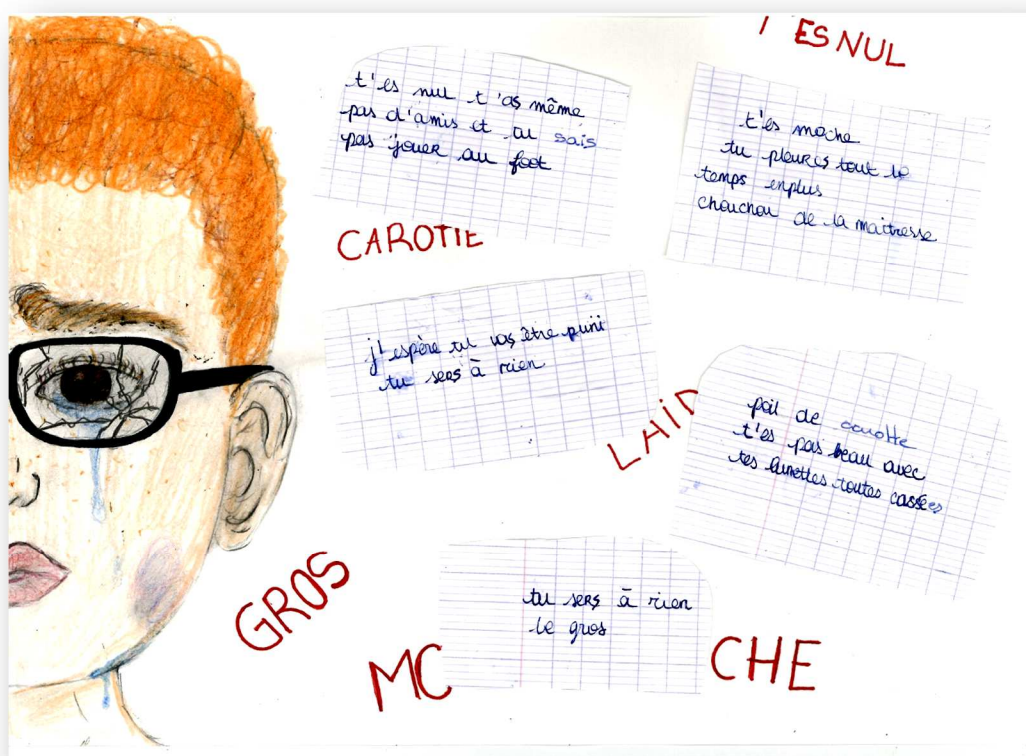 T ES NUL
t'es nul t'as même
pas d'amis et tu sais
pas jouer au foot
t'es moche
tu pleures tout le
temps enplus
chouchou de la maitresse
CAROTTE
j'espère tu vas être puni
tu sers à rien
LAID
poil de carotte
t'es pas beau avec
tes lunettes toutes cassées
GROS
tu sers à rien
le gros
MO CHE